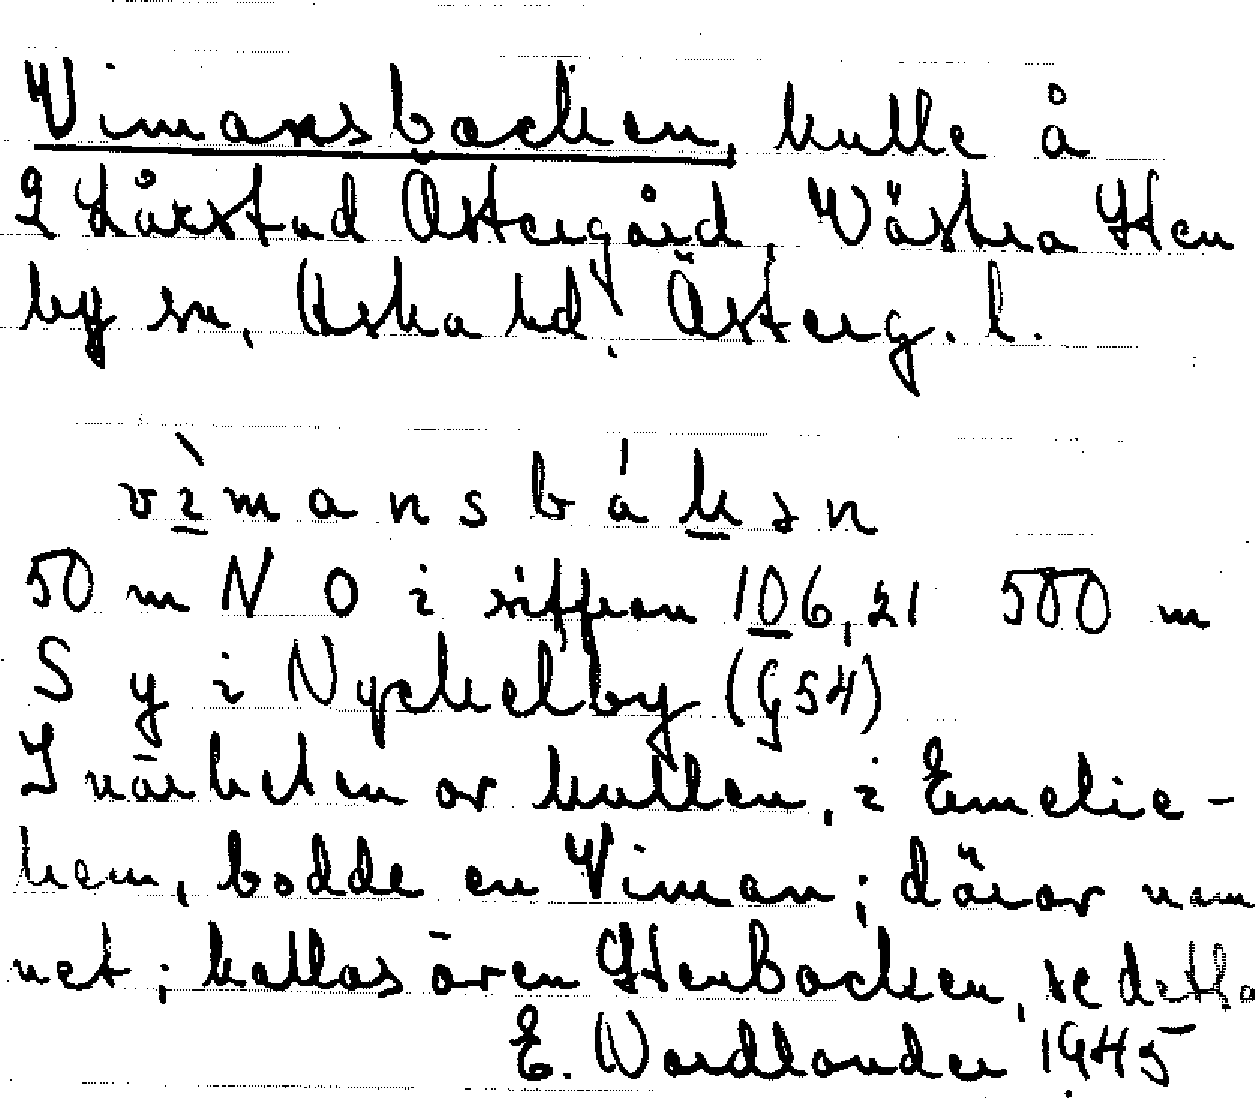 Vimansbacken, kulle å
2 Lårstad Östergård, Västra Sten
by sn, Aska hd, Österg. l.
vìmansbák̲ən
50 m N O i siffran 10̲6,21 500 m
S y i Nyckelby (G54)
I närheten av kullen, i Emelie-
hem, bodde en Viman; därav nam
net; kallas även Stenbacken, se detta
E. Nordlander 1945